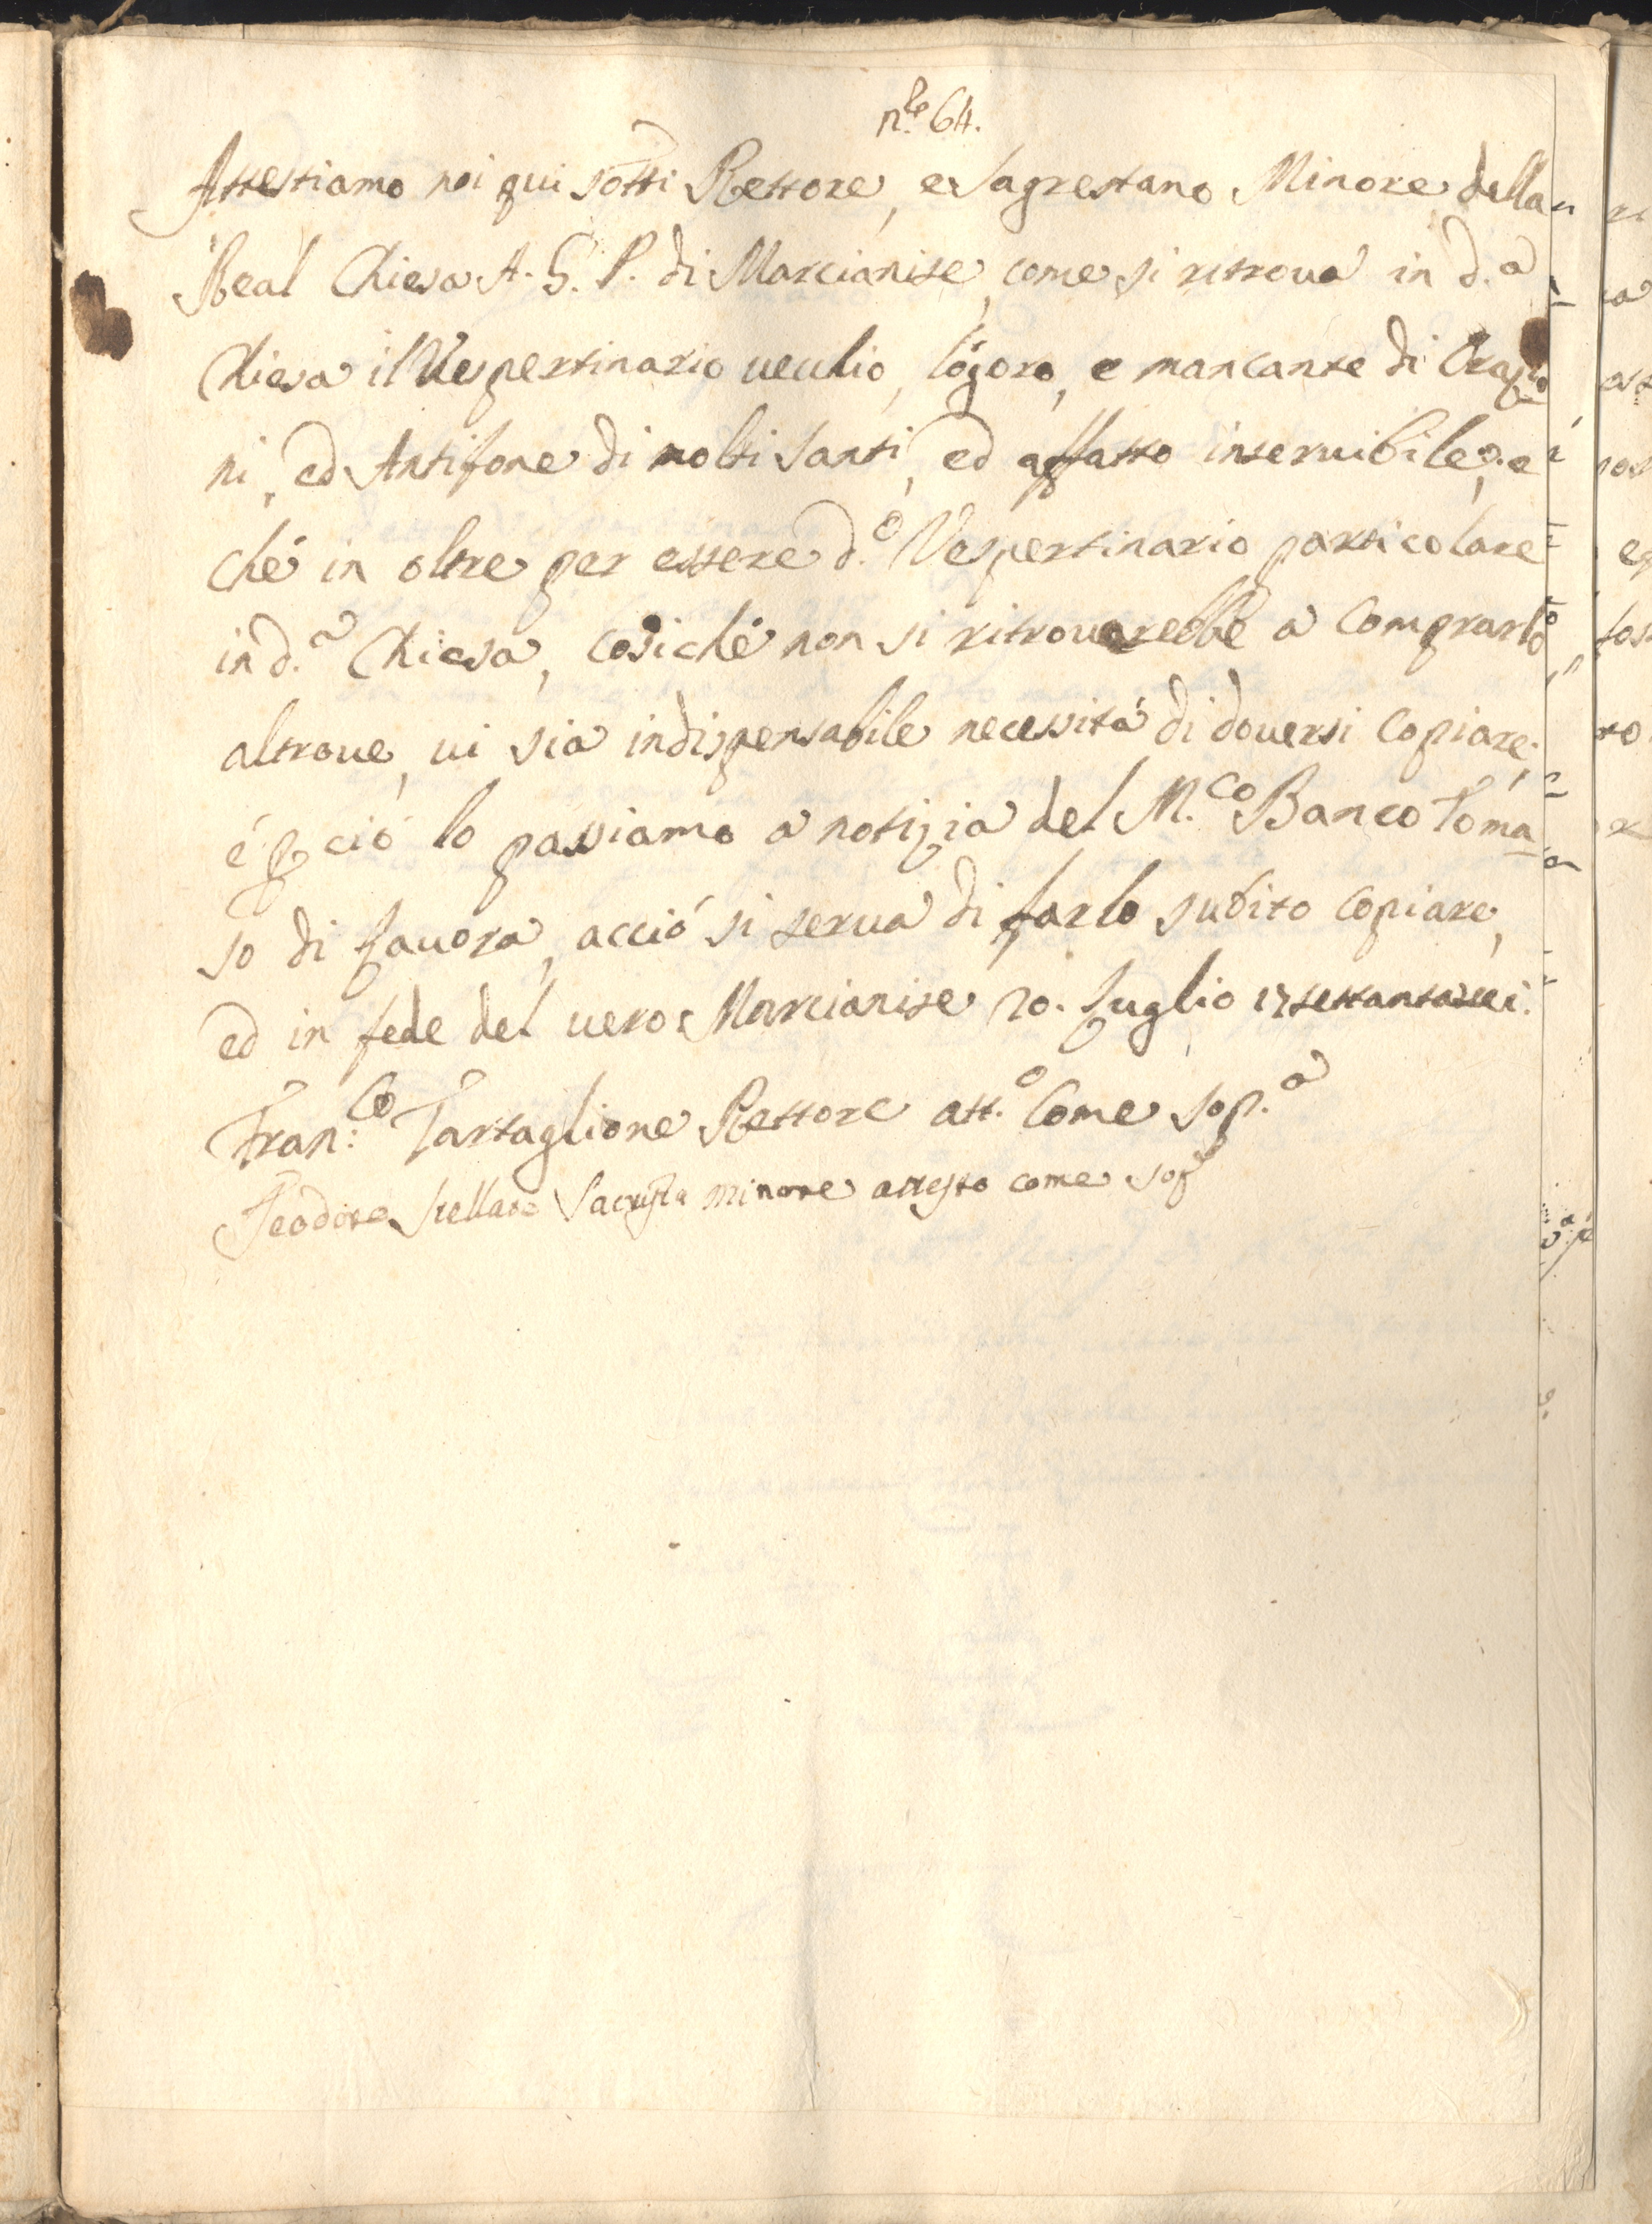 n.le 64.
Attestiamo noi qui sotti Rettore, e Sagrestano Minore della
Real Chiesa A. G. P. di Marcianise, come si ritrova in d.a
Chiesa il Vespertinario vecchio, logoro, e mancante di Orazio
ni, ed Antifone di molti Santi, ed affatto inservibile, e
ché in oltre per essere d.o Vespertinario particolare
in d.a Chiesa, cosiché non si ritrovarebbe a comprarlo
altrove, vi sia indispensabile necessitá di doversi copiare;
é p ció lo passiamo a notizia del M.co Banco Toma
so di favora, acció si serva di farlo subito copiare,
ed in fede del vero Marcianise 20. Luglio 17settantasei.
Fran:co Tartaglione Rettore att.o Come sop.a
Teodoro Stellato Sacrista minore attesto come sop